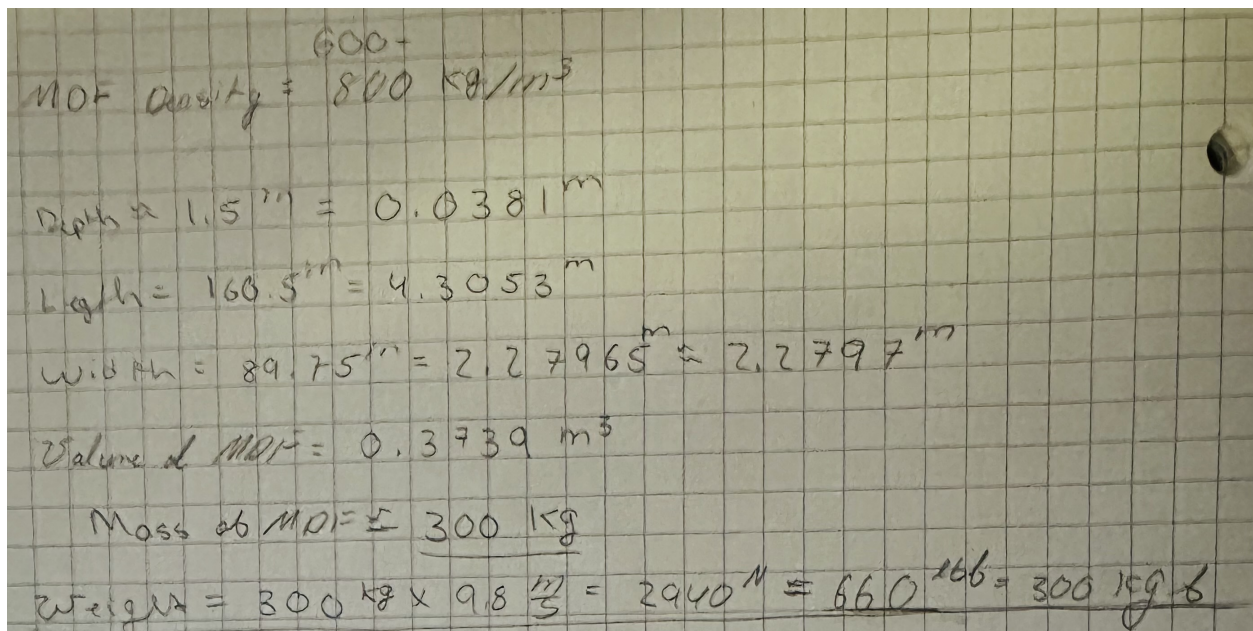 600-
MDF Density = 800 kg/m³
Depth = 1.5 in = 0.0381 m
Legth = 160.5 in = 4.3053 m
Width = 89.75 in = 2.27965 m ≈ 2.2797 m
Volume of MDF = 0.3739 m³
Mass of MDF = 300 kg
Weight = 300 kg × 9.8 m/s = 2940 N = 660 lbf = 300 kg f